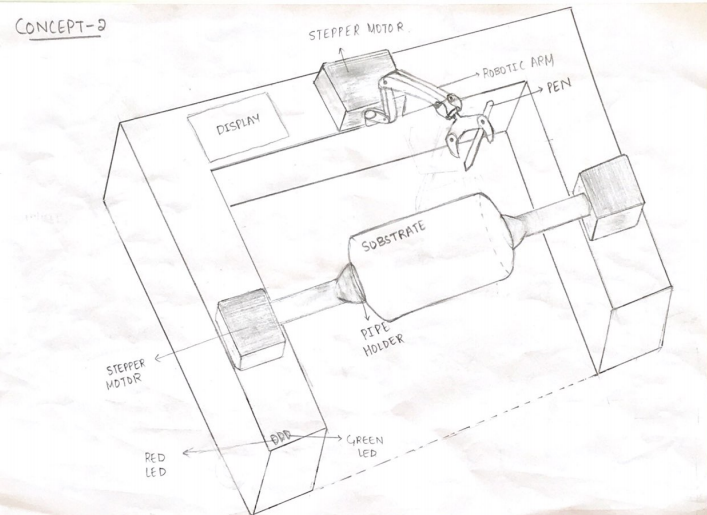 CONCEPT-2
STEPPER MOTOR
ROBOTIC ARM
PEN
DISPLAY
SUBSTRATE
PIPE
HOLDER
STEPPER
MOTOR
RED
LED
GREEN
LED